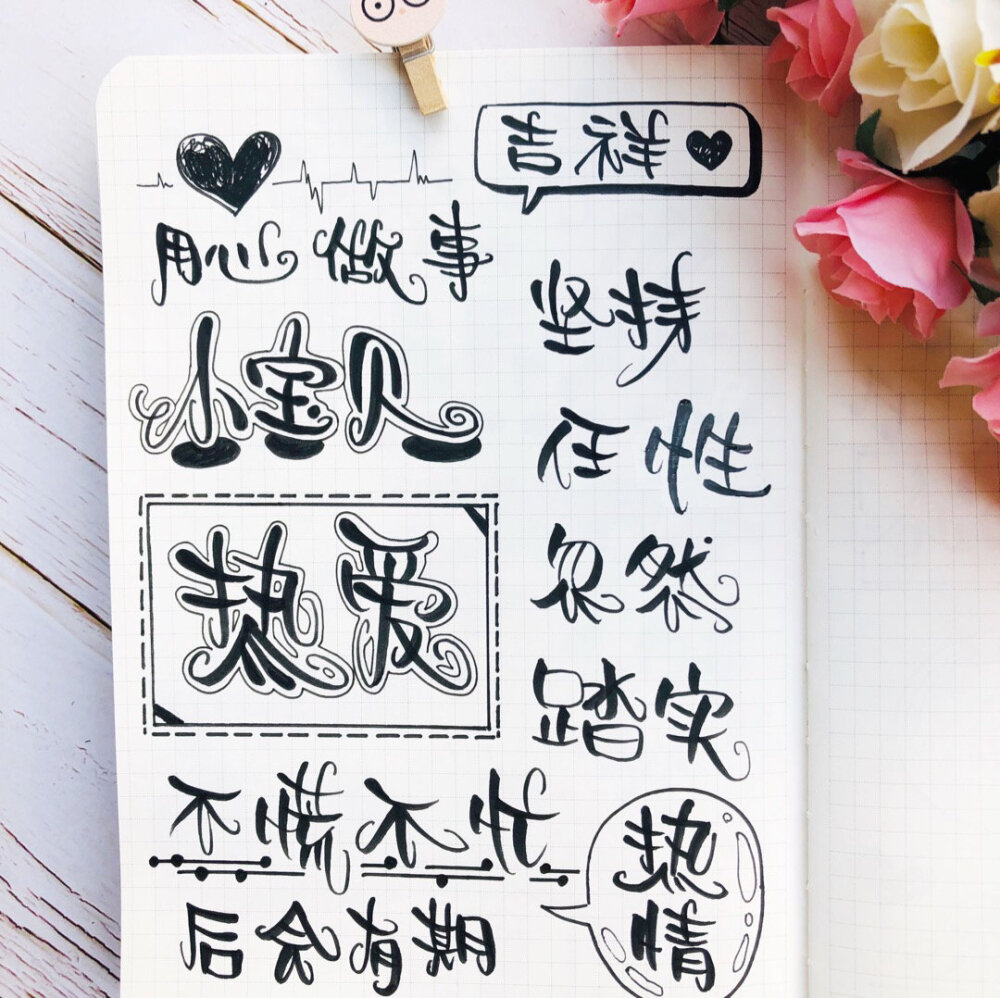 用心做事
小宝贝
热爱
不慌不忙
后会有期
吉祥
坚持
任性
忽然
踏实
热情